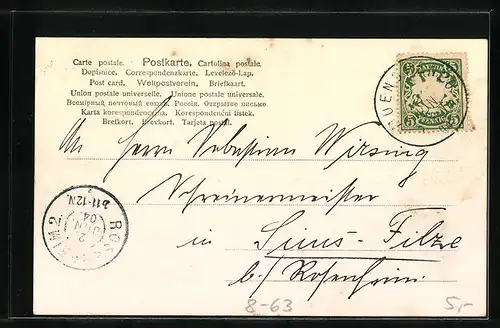 Carte postale. Postkarte. Cartolina postale.
Dopisnice. Correspondenzkarte. Levelező-Lap.
Post card. Weltpostverein. Briefkaart.
Union postale universelle. Unione postale universale.
Всемірный почтовый союзъ. Россія. Открытое письмо
Karta korespondencyjna. Korespondenční lístek.
Brefkort. Brevkort. Tarjeta postal.
BAYERN
5 5
PFENNIG
An Herrn Sebastian Wirsing
Schreinermeister
in Sims-Filze
b/ Rosenheim
ROSENHEIM 2
2
JAN
04
11-12N.
8-63
5,-